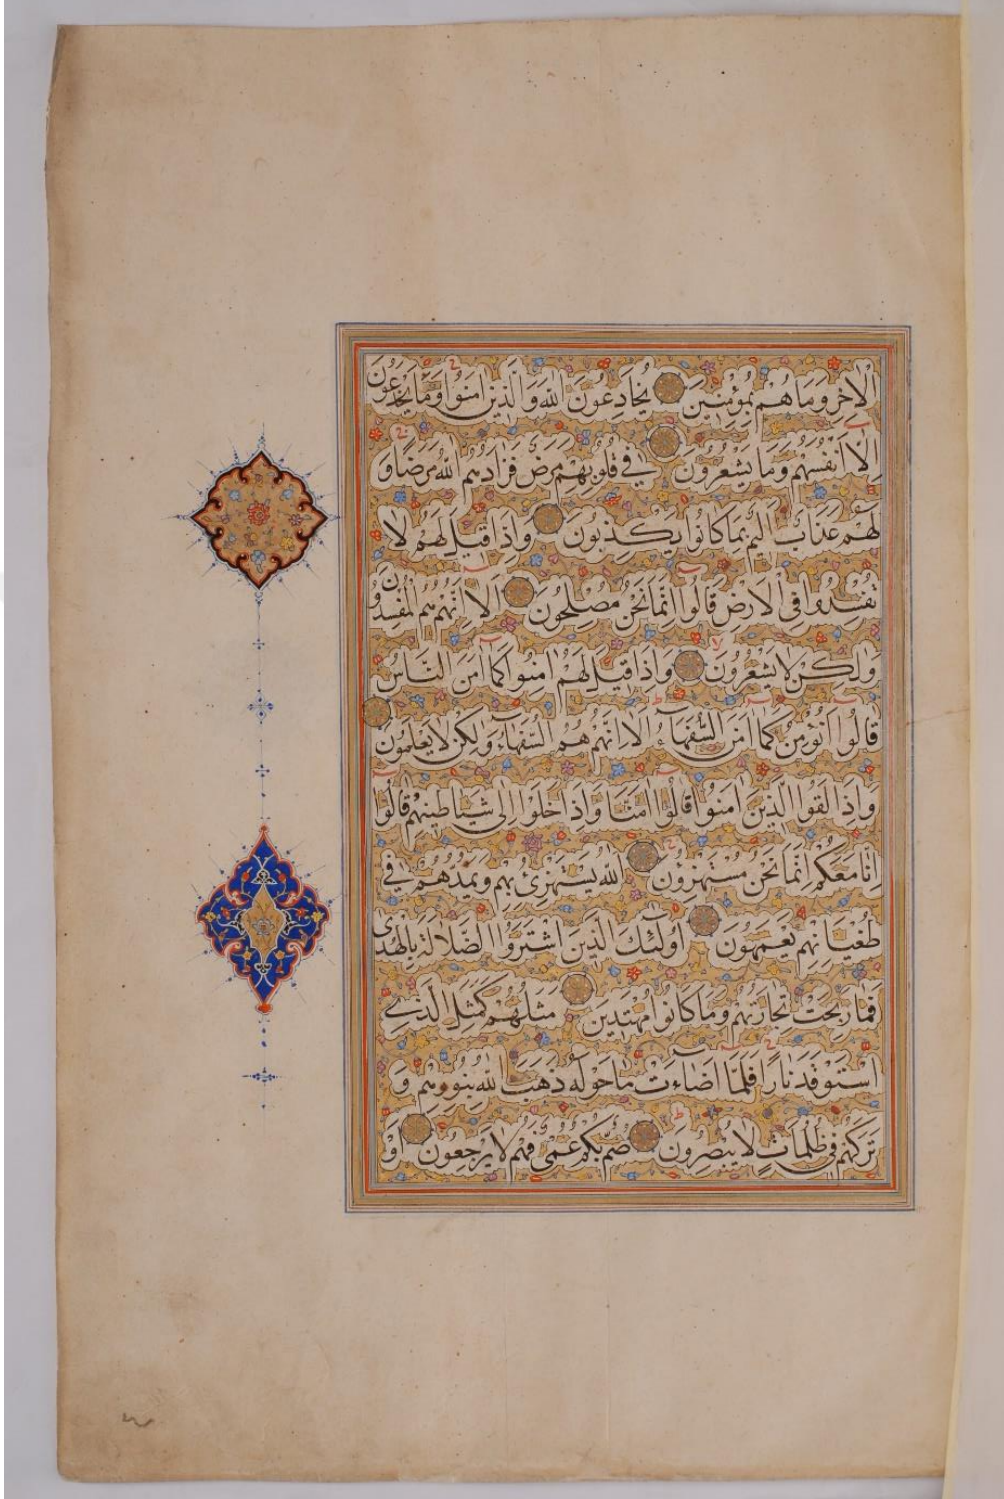 الْاٰخِرِ وَمَا هُمْ بِمُؤْمِنِينَ يُخَادِعُونَ اللّٰهَ وَالَّذِينَ اٰمَنُوا وَمَا يَخْدَعُونَ
اِلَّا اَنْفُسَهُمْ وَمَا يَشْعُرُونَ فِي قُلُوبِهِمْ مَرَضٌ فَزَادَهُمُ اللّٰهُ مَرَضًا وَ
لَهُمْ عَذَابٌ اَلِيمٌ بِمَا كَانُوا يَكْذِبُونَ وَاِذَا قِيلَ لَهُمْ لَا
تُفْسِدُوا فِي الْاَرْضِ قَالُوا اِنَّمَا نَحْنُ مُصْلِحُونَ اَلَا اِنَّهُمْ هُمُ الْمُفْسِدُونَ
وَلٰكِنْ لَا يَشْعُرُونَ وَاِذَا قِيلَ لَهُمْ اٰمِنُوا كَمَا اٰمَنَ النَّاسُ
قَالُوا اَنُؤْمِنُ كَمَا اٰمَنَ السُّفَهَاءُ اَلَا اِنَّهُمْ هُمُ السُّفَهَاءُ وَلٰكِنْ لَا يَعْلَمُونَ
وَاِذَا لَقُوا الَّذِينَ اٰمَنُوا قَالُوا اٰمَنَّا وَاِذَا خَلَوْا اِلٰى شَيَاطِينِهِمْ قَالُوا
اِنَّا مَعَكُمْ اِنَّمَا نَحْنُ مُسْتَهْزِؤُنَ اَللّٰهُ يَسْتَهْزِئُ بِهِمْ وَيَمُدُّهُمْ فِي
طُغْيَانِهِمْ يَعْمَهُونَ اُولٰئِكَ الَّذِينَ اشْتَرَوُا الضَّلَالَةَ بِالْهُدٰى
فَمَا رَبِحَتْ تِجَارَتُهُمْ وَمَا كَانُوا مُهْتَدِينَ مَثَلُهُمْ كَمَثَلِ الَّذِي
اسْتَوْقَدَ نَارًا فَلَمَّا اَضَاءَتْ مَا حَوْلَهُ ذَهَبَ اللّٰهُ بِنُورِهِمْ وَ
تَرَكَهُمْ فِي ظُلُمَاتٍ لَا يُبْصِرُونَ صُمٌّ بُكْمٌ عُمْيٌ فَهُمْ لَا يَرْجِعُونَ اَوْ